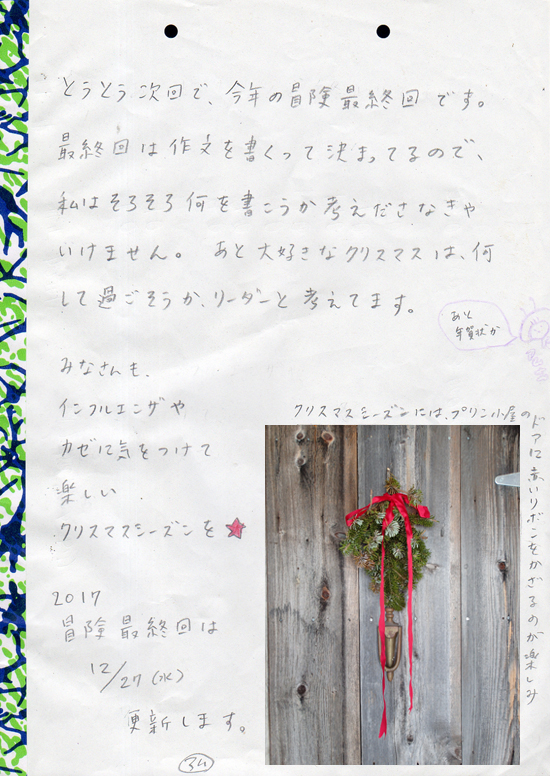 とうとう次回で、今年の冒険最終回です。
最終回は作文を書くって決まってるので、
私はそろそろ何を書こうか考えださなきゃ
いけません。あと大好きなクリスマスは、何
して過ごそうか、リーダーと考えてます。
あと
年賀状か
みなさんも、
インフルエンザや
カゼに気をつけて
楽しい
クリスマスシーズンを
クリスマスシーズンには、プリン小屋の
ドアに赤いリボンをかざるのが楽しみ
2017
冒険最終回は
12/27(水)
更新します。
34